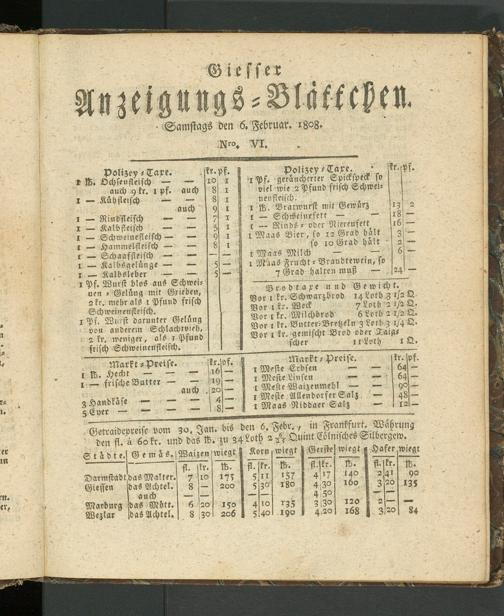 Giesser
Anzeigungs-Blättchen.
Samstags den 6. Februar. 1808.
Nro. VI.
Polizey-Taxe. kr. pf.
1 ℔. Ochsenfleisch — — 10 1
auch 9 kr. 1 pf. auch 8 1
1 — Kühfleisch — — 8 1
auch 9 1
1 — Rindfleisch — — 7 1
1 — Kalbfleisch — — 5 1
1 — Schweinefleisch — — 9 1
1 — Hammelfleisch — — 8 1
1 — Schaaffleisch — — — —
1 — Kalbsgelünge — — 5 —
1 — Kalbsleber — — 5 —
1 Pf. Wurst blos aus Schwei-
nen-Gelüng mit Grieben,
2 kr. mehr als 1 Pfund frisch
Schweinenfleisch.
1 Pf. Wurst darunter Gelüng
von anderem Schlachtvieh,
2 kr. weniger, als 1 Pfund
frisch Schweinenfleisch.
Polizey-Taxe. kr. pf.
1 Pf. geräucherter Spickspeck so
viel wie 2 Pfund frisch Schwei-
nenfleisch.
1 ℔. Bratwurst mit Gewürz 13 2
1 — Schweinefett — — 18 —
1 — Rinds- oder Nierenfett 16 —
1 Maas Bier, so 12 Grad hält 3 —
so 10 Grad hält 2 —
1 Maas Milch — — 6 —
1 Maas Frucht-Brandtewein, so
7 Grad halten muß — 24 —
Brodtaxe und Gewicht.
Vor 1 kr. Schwarzbrod 14 Loth 3 1/2 Q.
Vor 1 kr. Weck 7 Loth 2 1/2 Q.
Vor 1 kr. Milchbrod 6 Loth 2 1/2 Q.
Vor 1 kr. Butter-Bretzeln 3 Loth 3 1/4 Q.
Vor 1 kr. gemischt Brod oder Taigs
scher 11 Loth 1 Q.
Markt-Preise. kr. pf.
1 ℔. Hecht — — 16 —
1 — frische Butter — — 19 —
auch 20 —
3 Handkäse — — 4 —
5 Eyer — — — 8 —
Markt-Preise. kr. pf.
1 Meste Erbsen 64 —
1 Meste Linsen — 64 —
1 Meste Waizenmehl — 90 —
1 Meste Allendorfer Salz 48 —
1 Maas Niddaer Salz 12 —
Getraidepreise vom 30. Jan. bis den 6. Febr., in Frankfurt. Währung
den fl. á 60 kr. und das ℔. zu 34 Loth 2 Quint Cölnisches Silbergew.
Städte. Gemäs. Waizen wiegt Korn wiegt Gerste wiegt Hafer wiegt
fl. kr. ℔. fl. kr. ℔. fl. kr. ℔. fl. kr. ℔.
Darmstadt das Malter. 7 10 175 5 11 157 4 17 140 2 41 90
Giessen das Achtel. 8 — 200 5 30 180 4 30 160 3 20 135
auch — — 4 50 —
Marburg das Mött. 6 20 150 4 10 135 3 30 120 2 — —
Wezlar das Achtel. 8 30 206 5 40 190 4 20 168 3 20 84